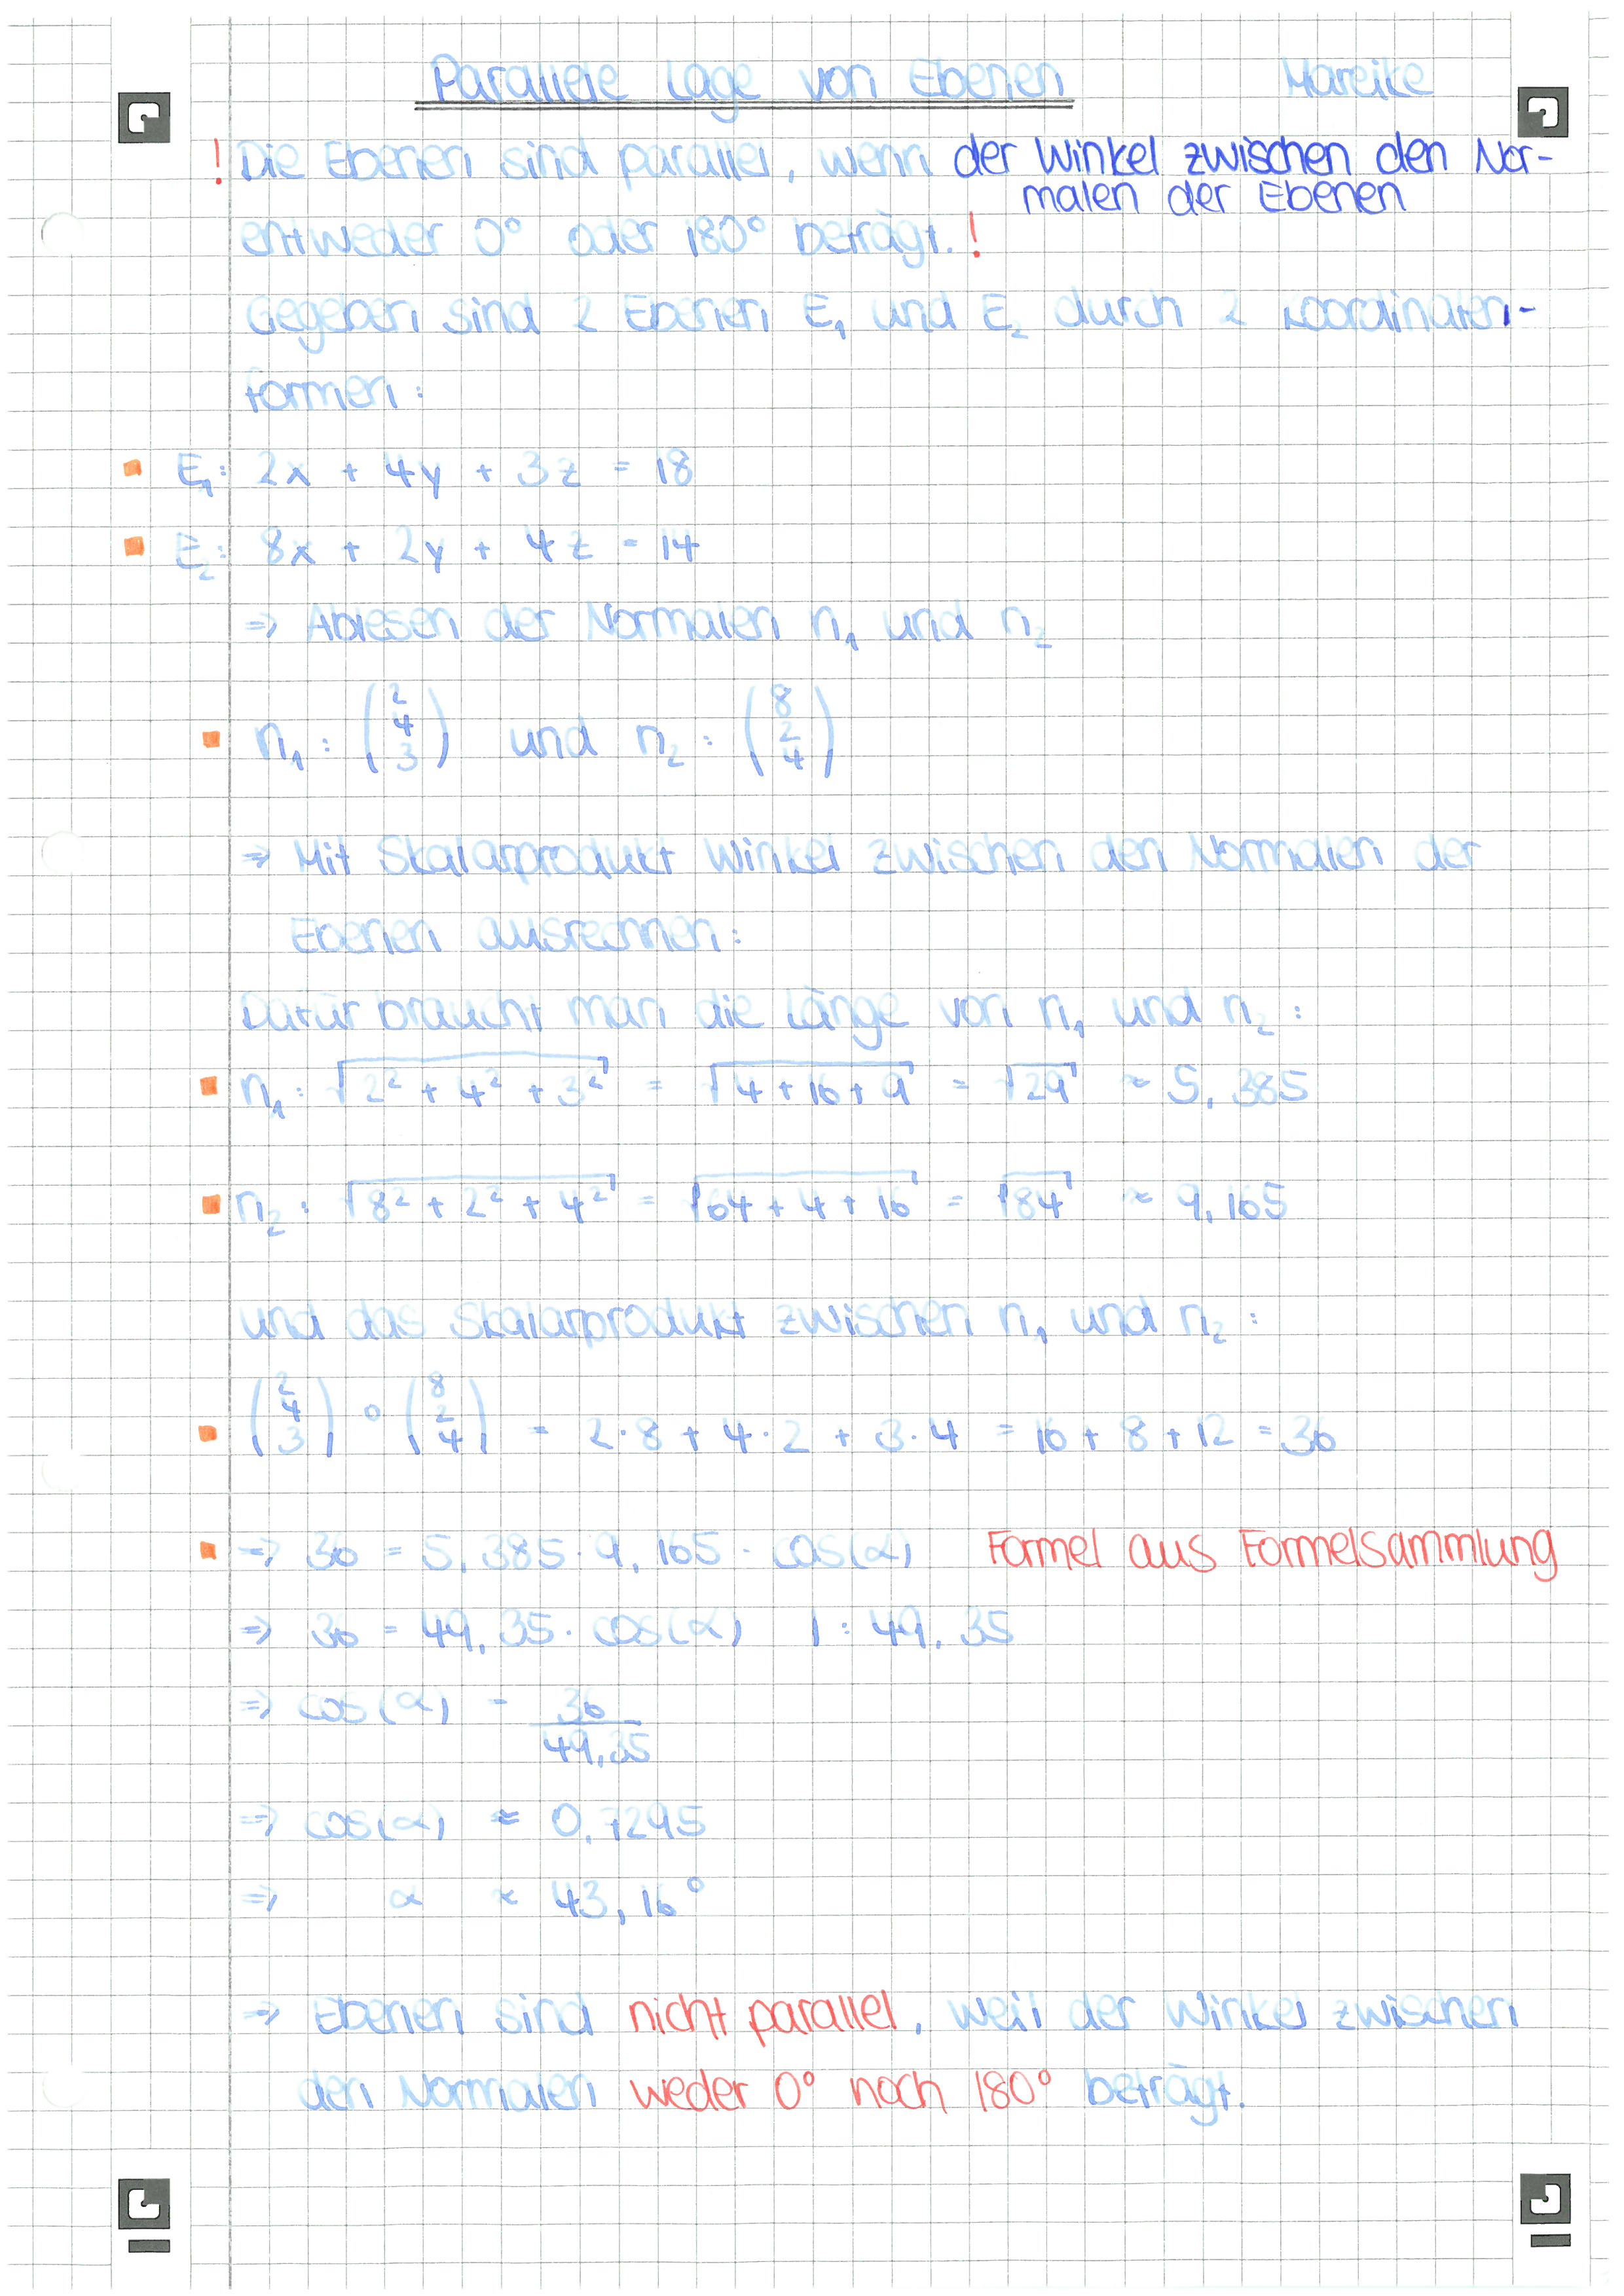 Parallele Lage von Ebenen Mareike
! Die Ebenen sind parallel, wenn der Winkel zwischen den Nor-
malen der Ebenen
entweder 0° oder 180° beträgt. !
Gegeben sind 2 Ebenen E₁ und E₂ durch 2 Koordinaten-
formen:
E₁: 2x + 4y + 3z = 18
E₂: 8x + 2y + 4z = 14
⇒ Ablesen der Normalen n₁ und n₂
n₁ : (2 4 3) und n₂ : (8 2 4)
⇒ Mit Skalarprodukt Winkel zwischen den Normalen der
Ebenen ausrechnen:
Dafür braucht man die Länge von n₁ und n₂ :
n₁ : √(2² + 4² + 3²) = √(4 + 16 + 9) = √29 ≈ 5,385
n₂ : √(8² + 2² + 4²) = √(64 + 4 + 16) = √84 ≈ 9,165
und das Skalarprodukt zwischen n₁ und n₂ :
(2 4 3) ∘ (8 2 4) = 2·8 + 4·2 + 3·4 = 16 + 8 + 12 = 36
⇒ 36 = 5,385 · 9,165 · cos(α) Formel aus Formelsammlung
⇒ 36 = 49,35 · cos(α) | : 49,35
⇒ cos(α) = 36/49,35
⇒ cos(α) ≈ 0,7295
⇒ α ≈ 43,16°
⇒ Ebenen sind nicht parallel, weil der Winkel zwischen
den Normalen weder 0° noch 180° beträgt.